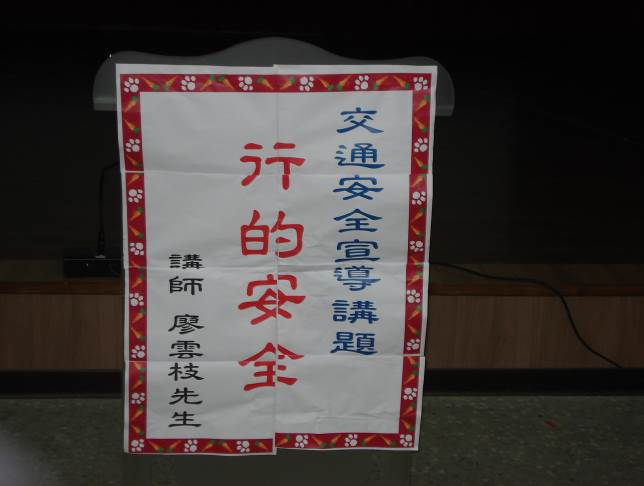 交通安全宣導講題
行的安全
講師 廖雲枝先生